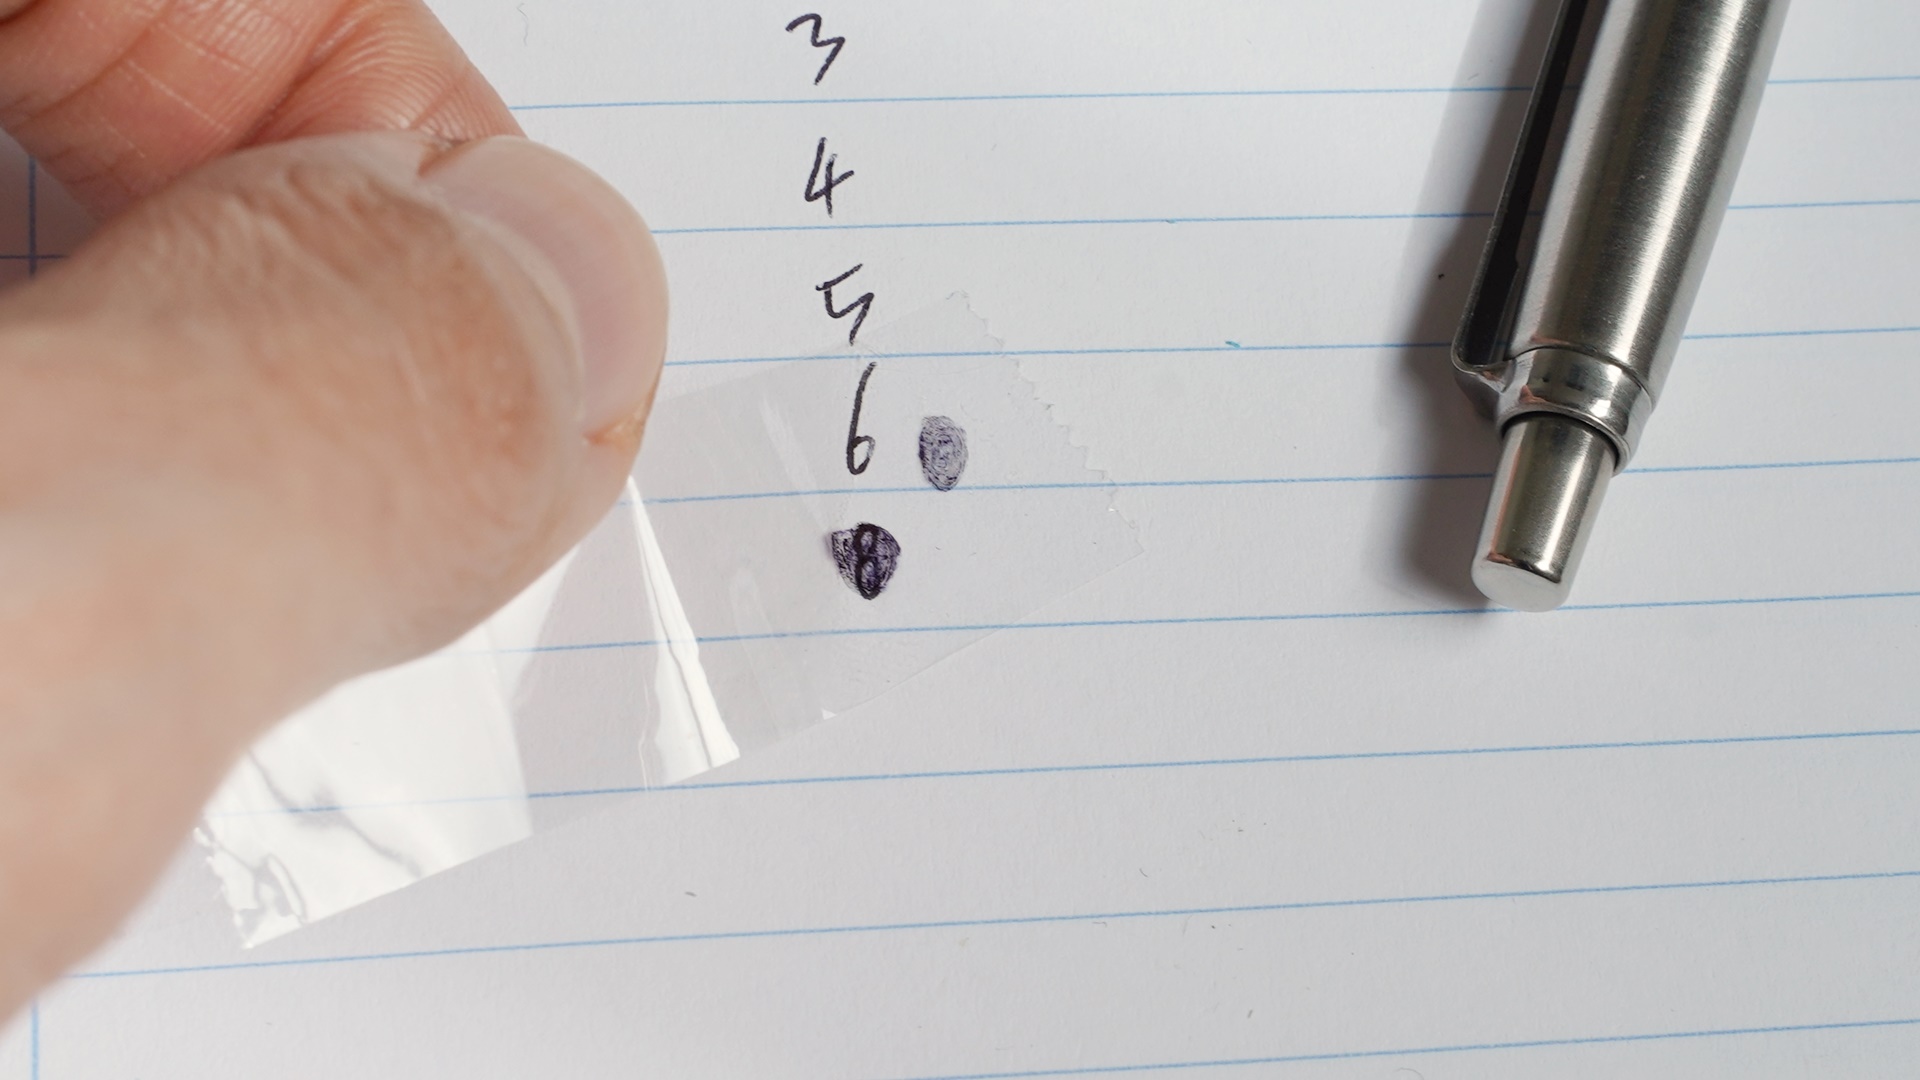 3
4
5
6
8